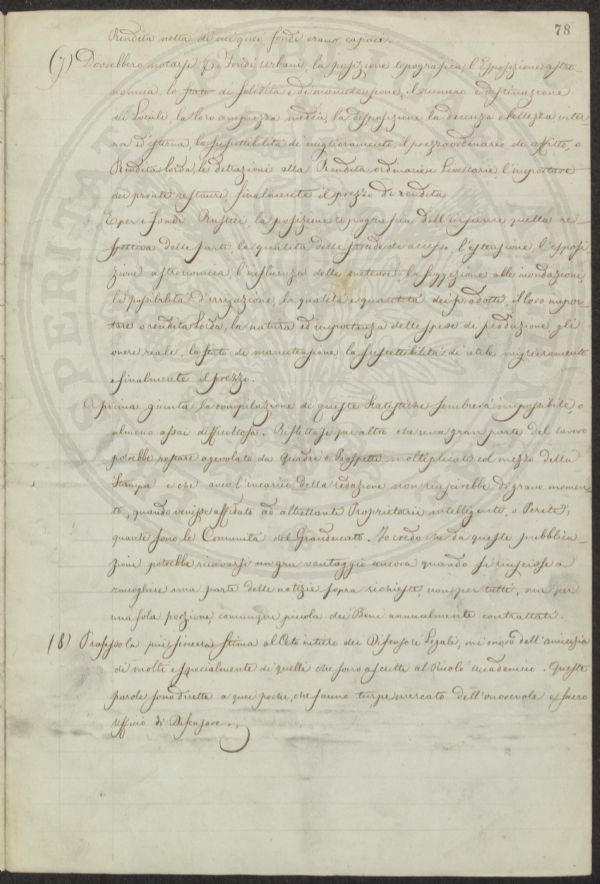 78
Rendita netta di cui quei fondi erano capaci.
(7) Dovrebbero notarsi pei Fondi Urbani, la posizione topografica, l'Esposizione astro-
nomica, lo stato di solidità e di manutenzione, il numero e destinazione
dei Locali, la loro ampiezza media, la disposizione la decenza e bellezza inter-
na ed esterna, la suscettibilità di miglioramento, il prezzo ordinario di affitto, o
Rendita lorda, le detrazioni alla Rendita ordinarie e Livellarie l'importare
dei pronti restauri finalmente il prezzo di vendita
E per i Fondi Rustici la posizione topografica dell'insieme quella re-
spettiva delle parti la qualità delle strade di accesso, l'estensione l'esposi-
zione astronomica l'influenza delle meteore, la soggezione alle inondazioni,
la possibilità d'irrigazione, la qualità e quantità dei prodotti, il loro impor-
tare o rendita lorda, la natura ed importanza delle spese di produzione gli
oneri reali, lo stato di manutenzione la suscettibilità di utile miglioramento
e finalmente il prezzo.
A prima giunta la compilazione di queste Statistiche sembrerà impossibile o
almeno assai difficoltosa. Riflettasi per altro che una gran parte del lavoro
potrebbe restare agevolata da Quadri o Prospetti moltiplicati col mezzo della
Stampa e che anco l'incarico della redazione non riescirebbe di grave momen-
to, quando venisse affidato ad altrettanti Proprietarii intelligenti, o Periti,
quante sono le Comunità del Granducato. Io credo che da queste pubblica-
zioni potrebbe ricavarsi un gran vantaggio ancora quando si riuscisse a
raccogliere una parte delle notizie sopra richieste non per tutti, ma per
una sola porzione comunque piccola dei Beni annualmente contrattati.
(8) Professo la più sincera stima al Ceto intiero dei Difensori Legali, mi onoro dell'amicizia
di molti e specialmente di quelli che sono ascritti al Ruolo accademico. Queste
parole sono dirette a quei pochi, che fanno turpe mercato dell'onorevole e sacro
Ufficio di Difensore.